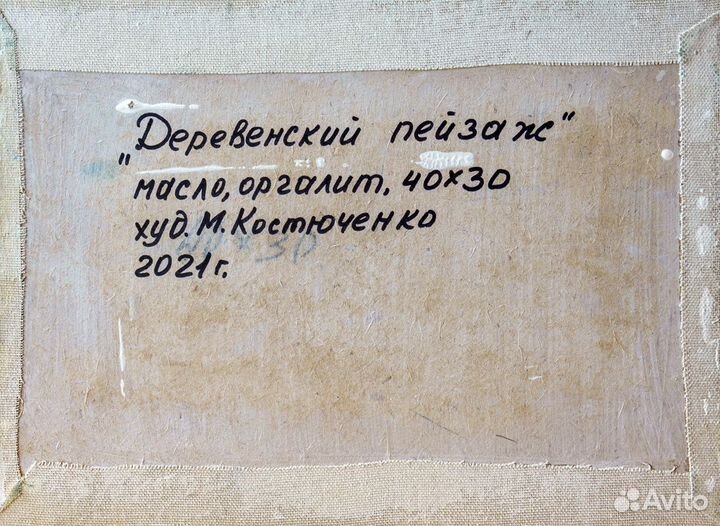 „Деревенский пейзаж"
масло, оргалит, 40x30
худ. М. Костюченко
40x30
2021г.
Avito